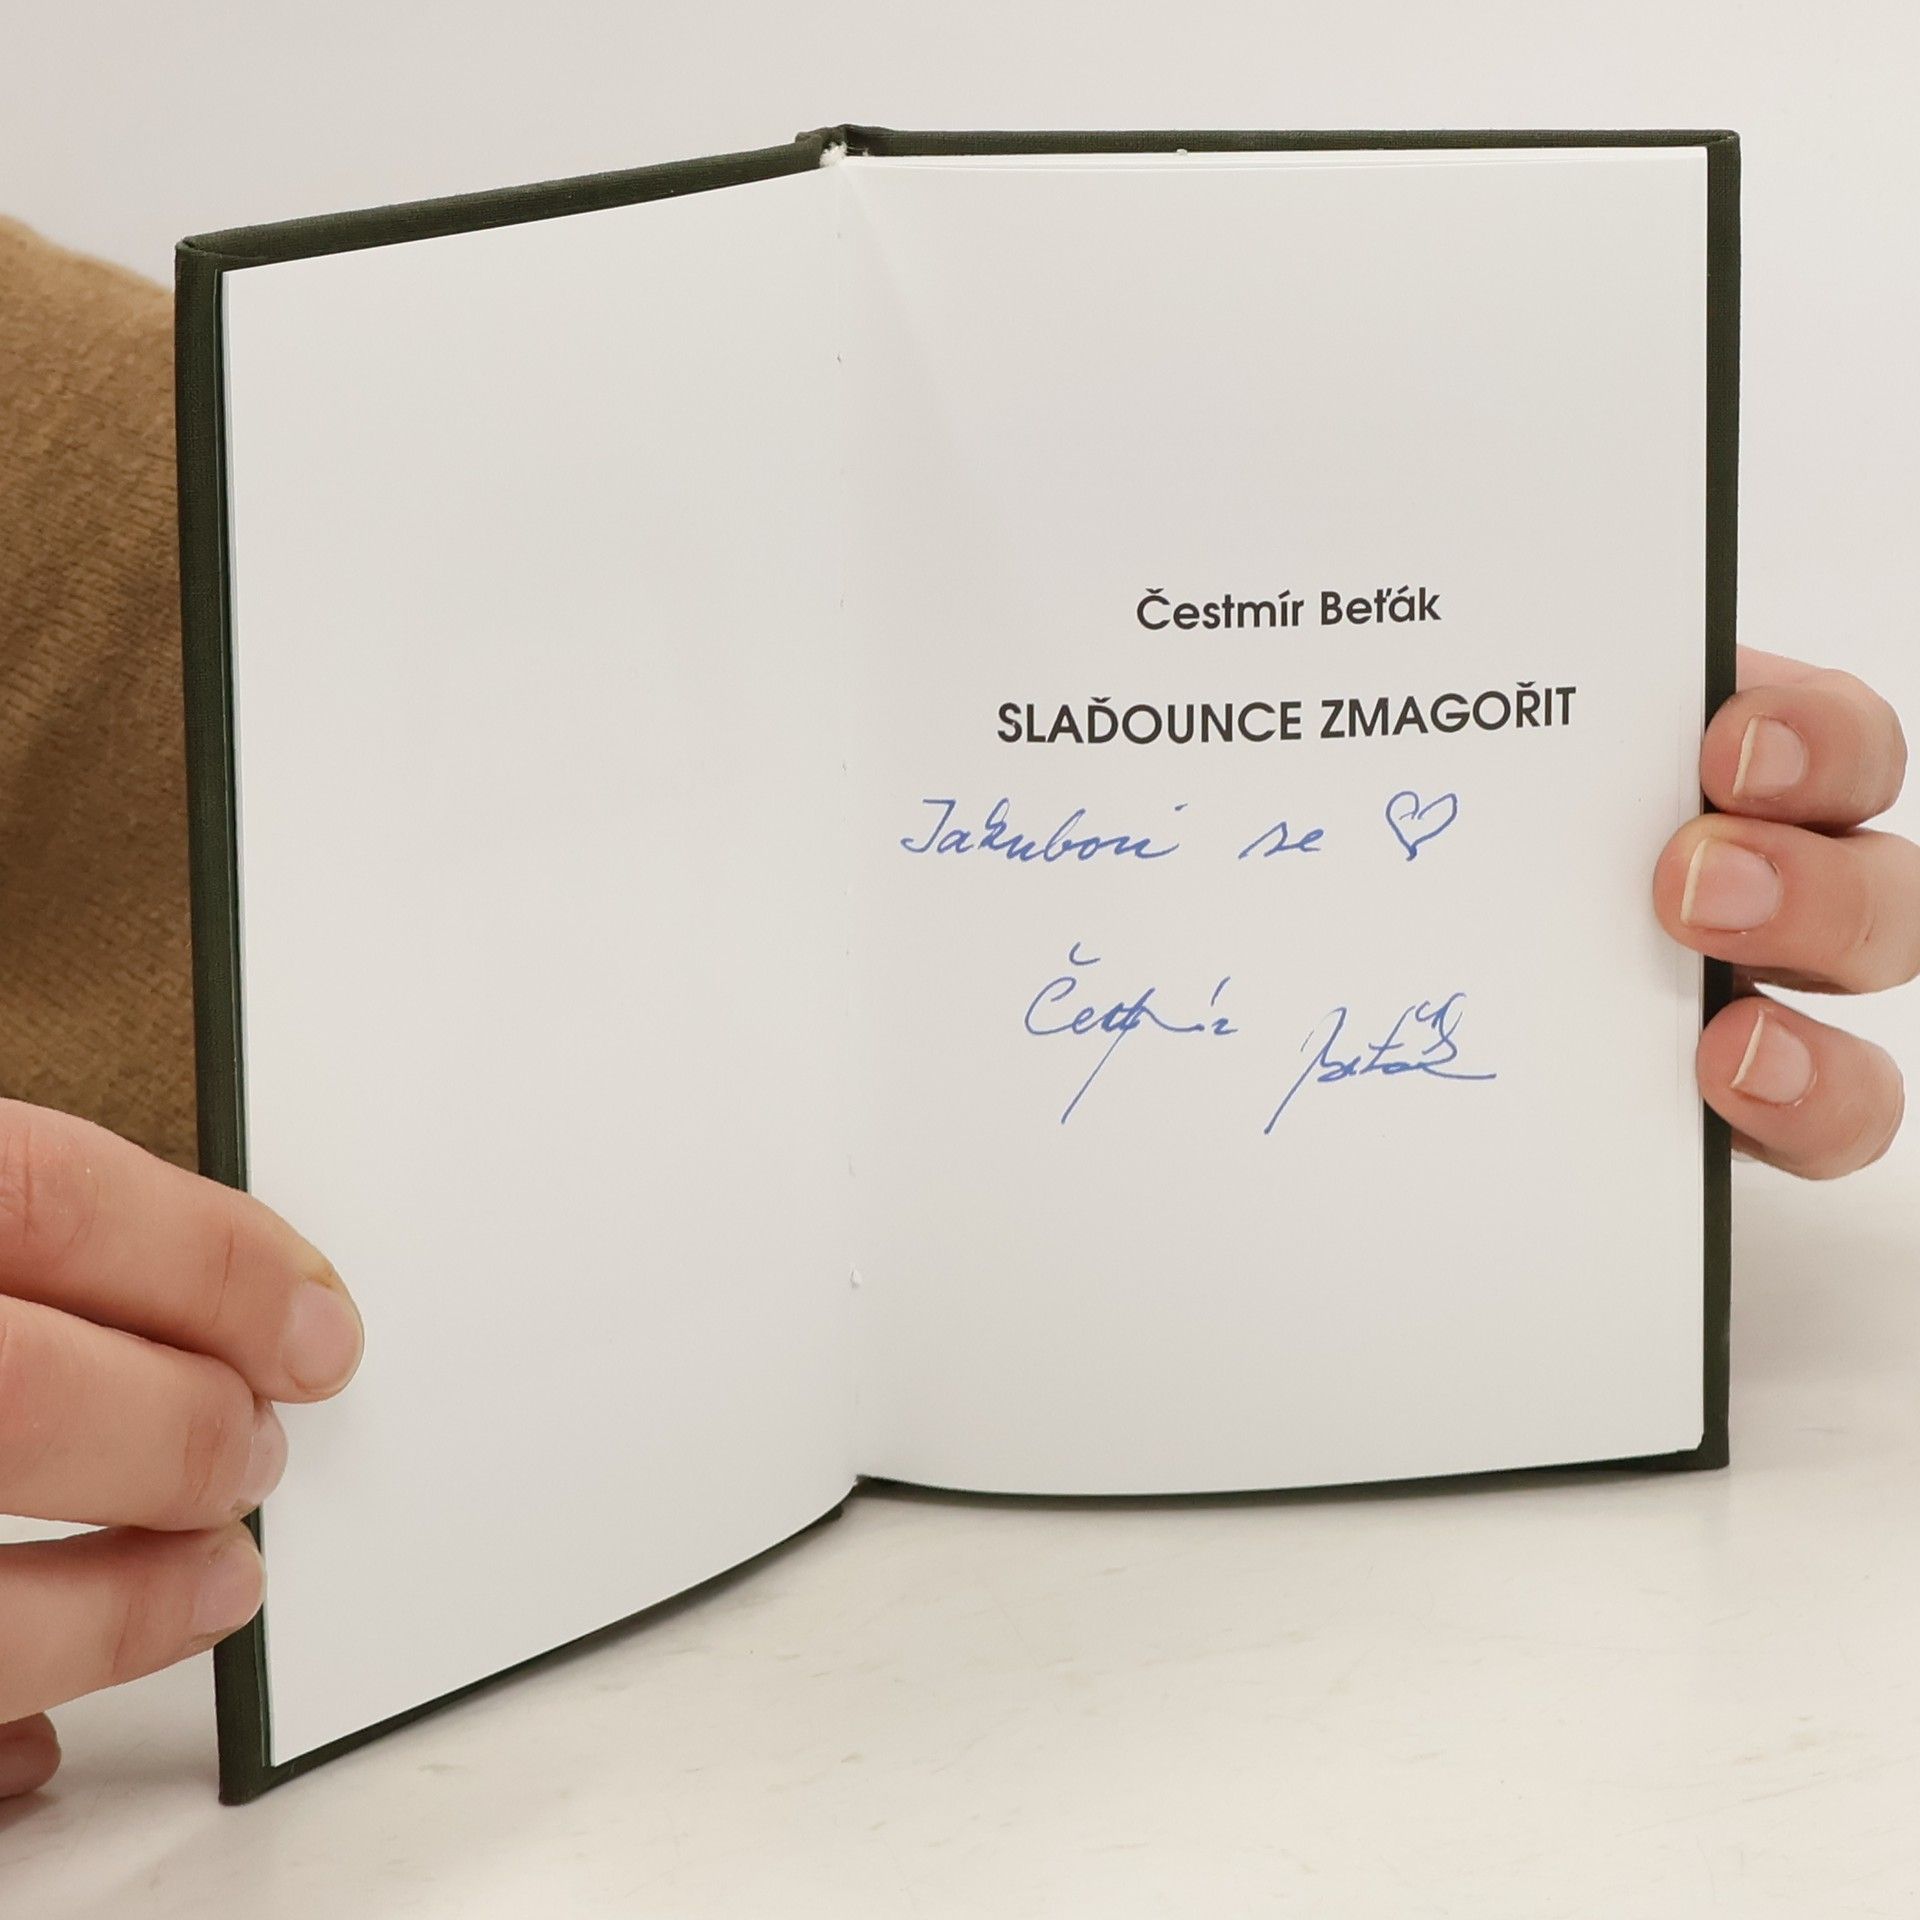 Čestmír Beťák
SLAĎOUNCE ZMAGOŘIT
Jakubovi se ♡
Čestmír Beťák